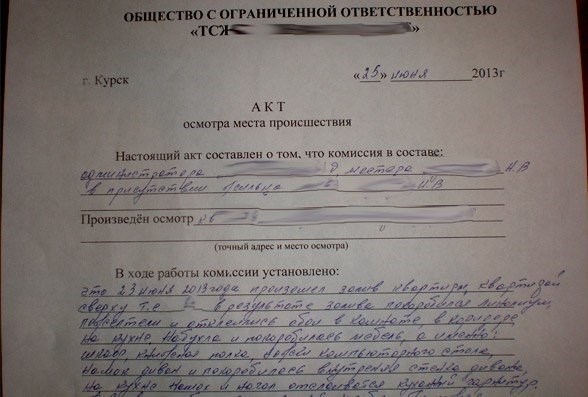 ОБЩЕСТВО С ОГРАНИЧЕННОЙ ОТВЕТСТВЕННОСТЬЮ
«ТСЖ »
г. Курск «25» июня 2013г
АКТ
осмотра места происшествия
Настоящий акт составлен о том, что комиссия в составе:
администратора мастера Н.В
в присутствии жильца Н.В
Произведён осмотр
(точный адрес и место осмотра)
В ходе работы комиссии установлено:
что 23 июня 2013 года произошел залив квартиры квартирой
сверху т.е в результате залива покоробился линолеум,
и отклеились обои в комнате в коридоре
на кухне. Набухла и покоробилась мебель, а именно:
шкаф, книжная полка, компьютерного стола,
намок диван и покоробилась внутренняя стенка дивана,
на кухне намок и начал отслаиваться кухонный гарнитур.